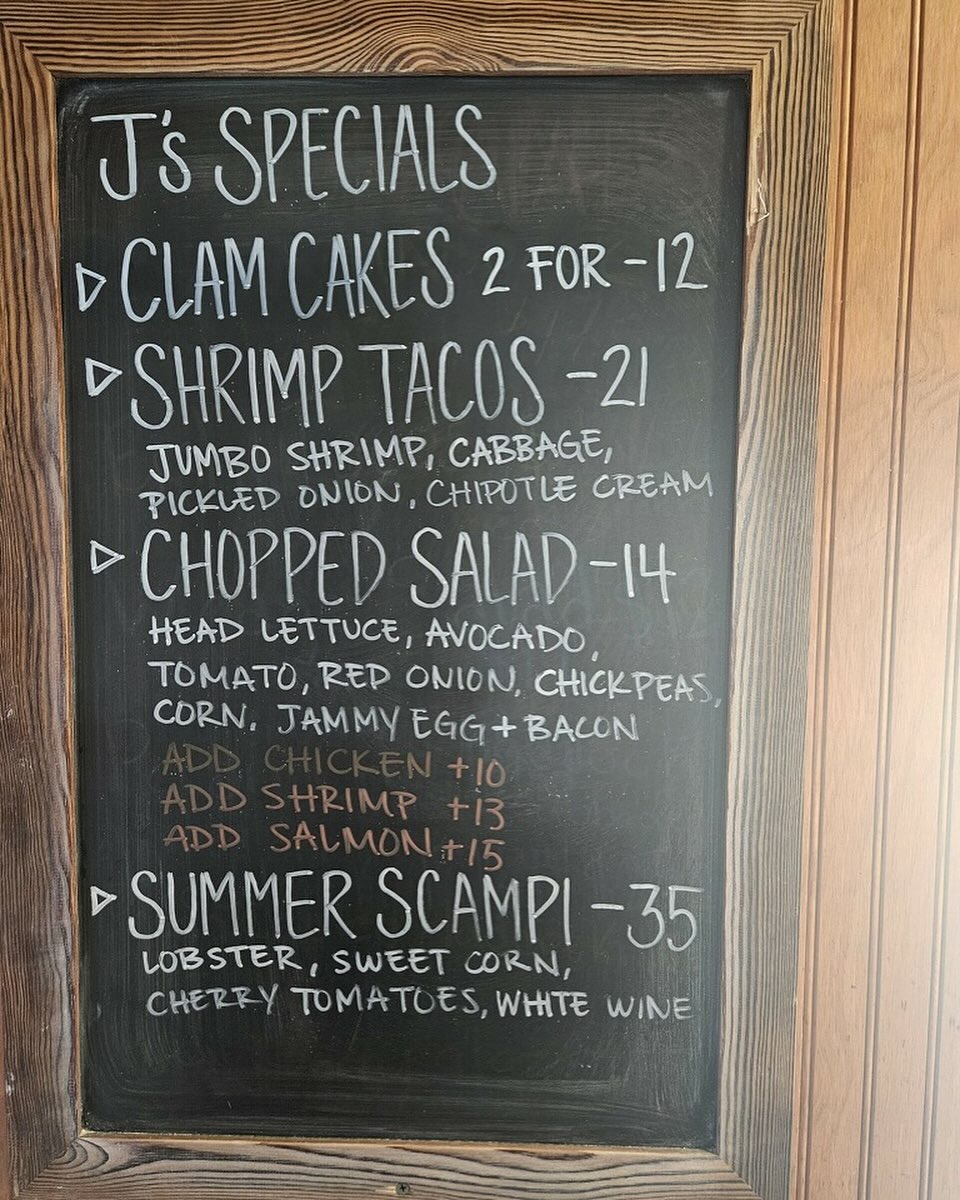 J's SPECIALS
▷ CLAM CAKES 2 FOR -12
▷ SHRIMP TACOS -21
JUMBO SHRIMP, CABBAGE,
PICKLED ONION, CHIPOTLE CREAM
▷ CHOPPED SALAD -14
HEAD LETTUCE, AVOCADO,
TOMATO, RED ONION, CHICKPEAS,
CORN, JAMMY EGG + BACON
ADD CHICKEN +10
ADD SHRIMP +13
ADD SALMON +15
▷ SUMMER SCAMPI -35
LOBSTER, SWEET CORN,
CHERRY TOMATOES, WHITE WINE